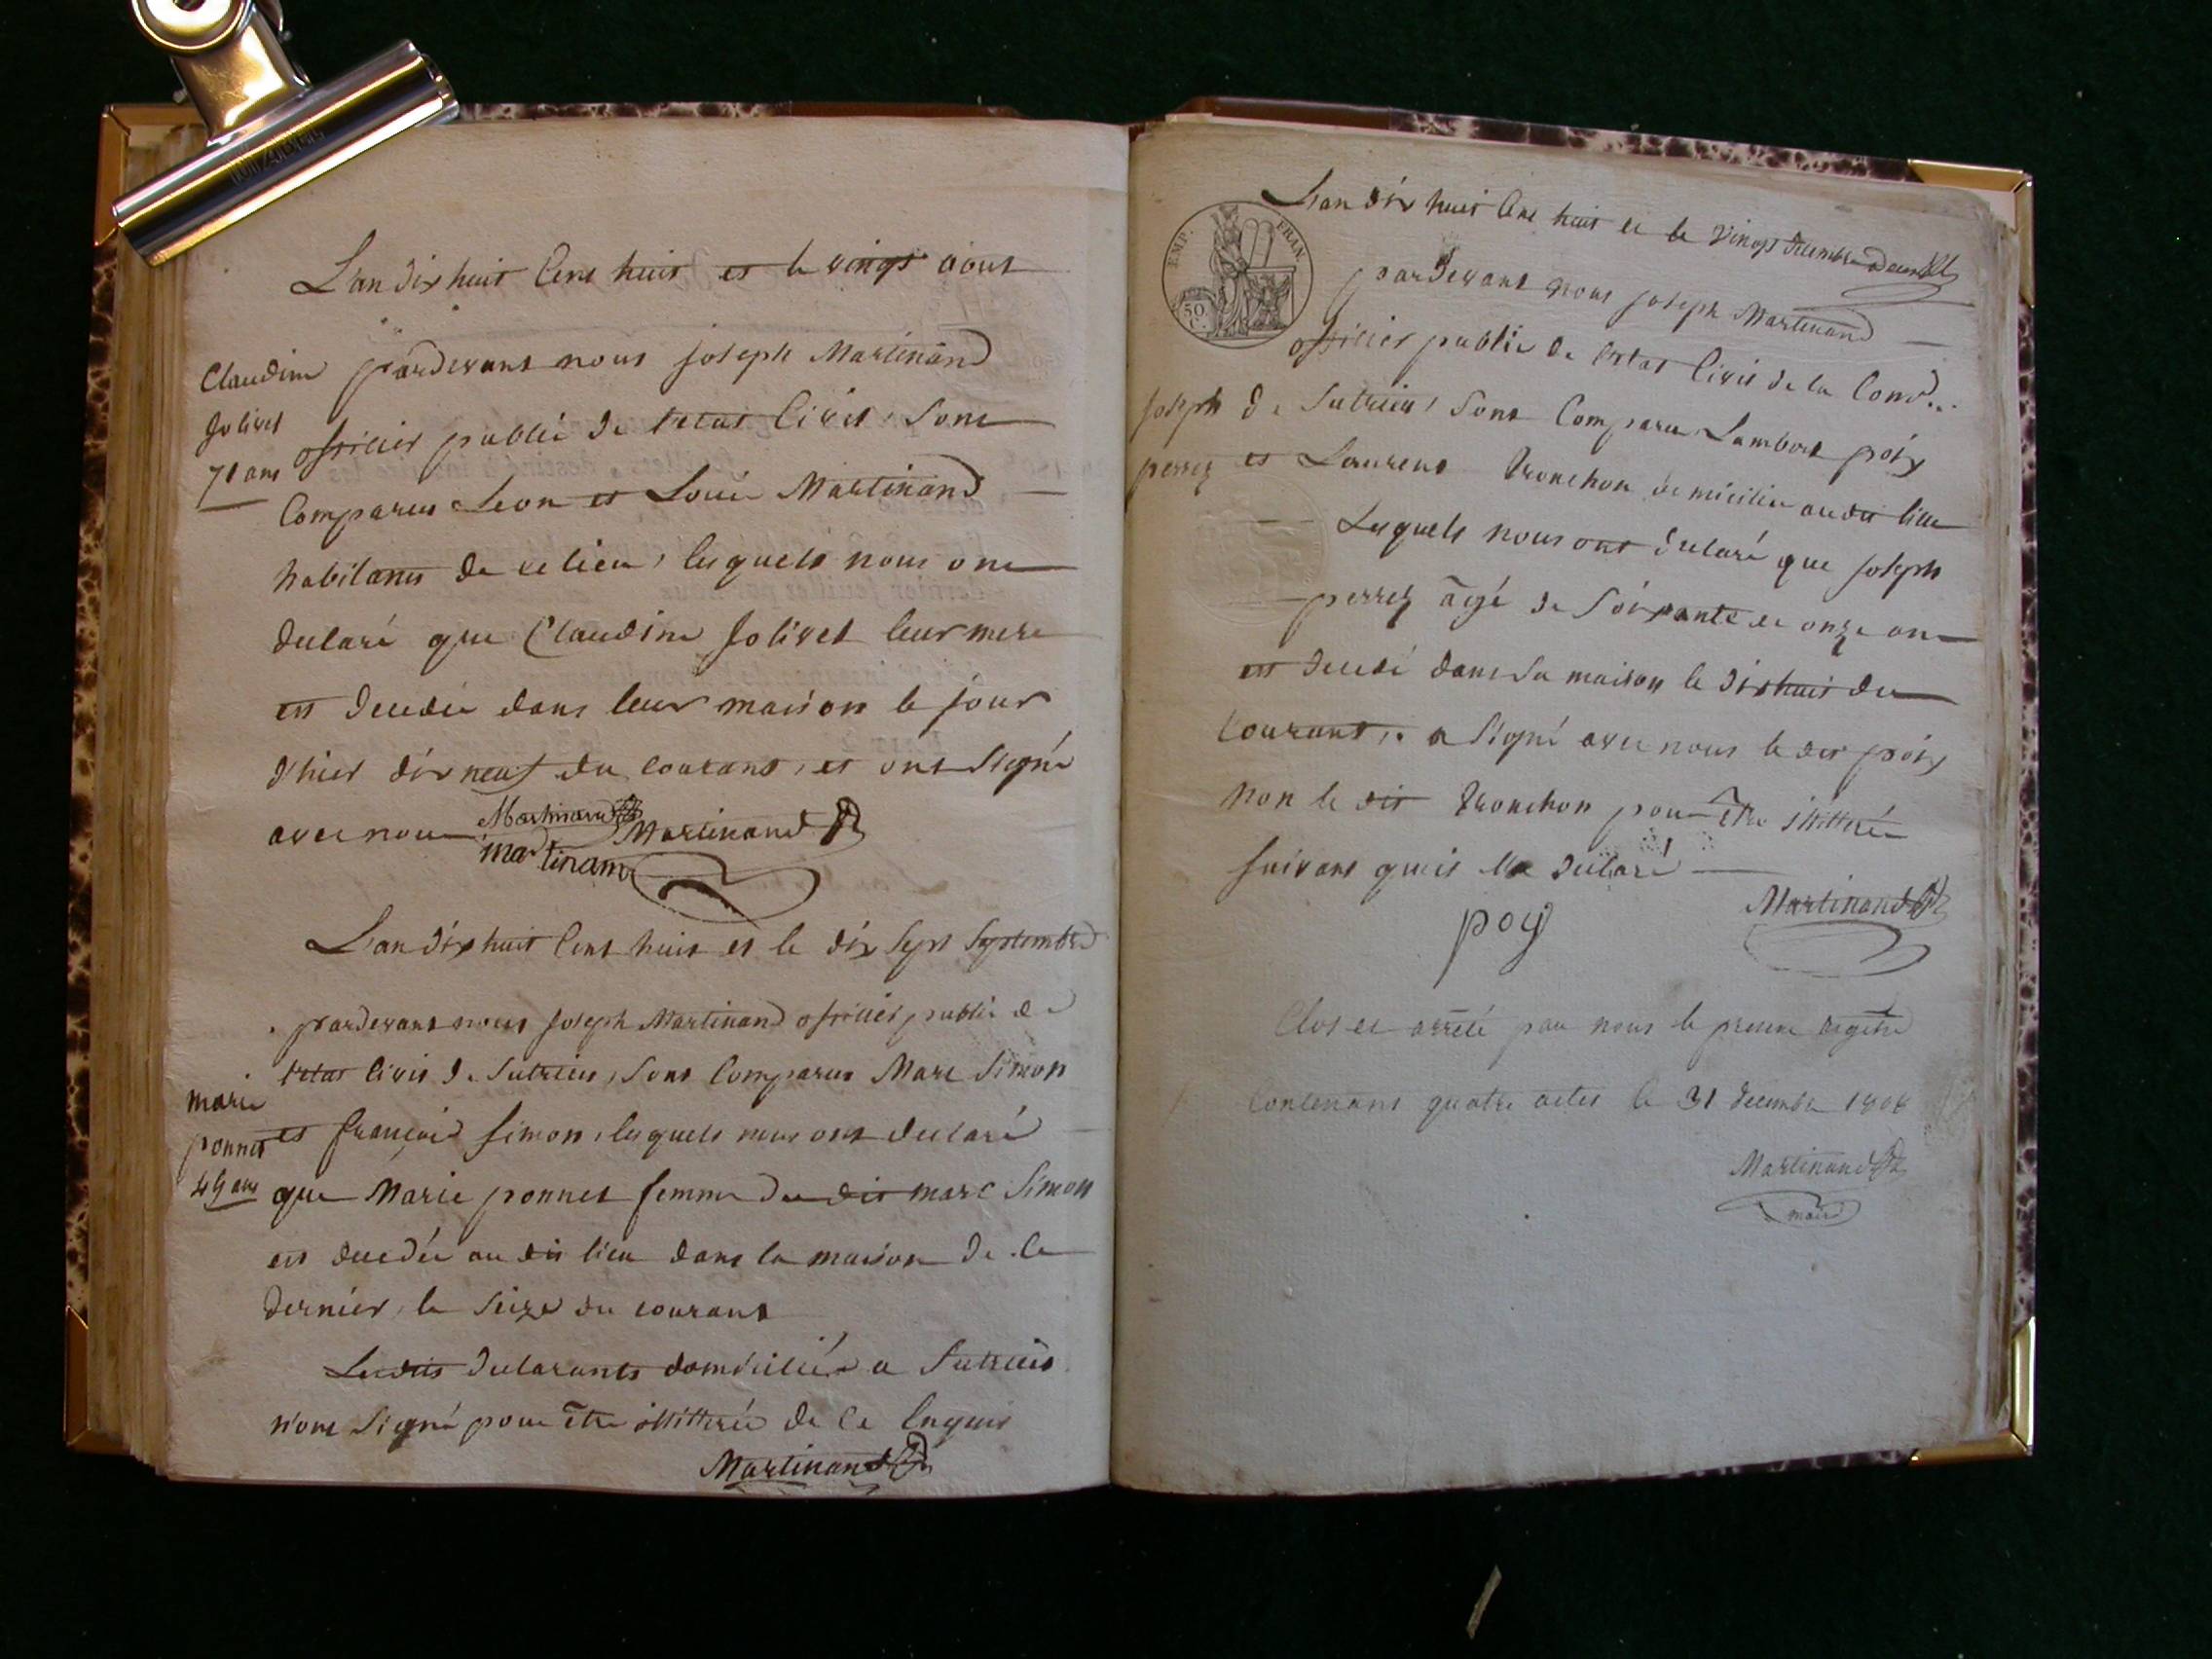 L'an dix huit Cent huit et le vingt aout
Claudine
Jolivet
71 ans
pardevant nous joseph Martinand
officier public de l'etat Civil, Sont
Comparus Leon et Louis Martinand
habitants de ce lieu, lesquels nous ont
declaré que Claudine Jolivet leur mere
est decedée dans leur maison le jour
d'hier dix neuf du courant, et ont signé
avec nous Martinand Martinand
martinant
L'an dix huit Cent huit et le dix sept Septembre
pardevant nous joseph Martinand officier public de
l'etat Civil de Sutrieu, Sont Comparus Marc Simon
marie
ponnet
49 ans
et françois Simon, lesquels nous ont declaré
que Marie ponnet femme du dit marc Simon
est decedée au dit lieu dans la maison de ce
dernier, le seize du courant
Lesdits declarants domiciliés a Sutrieu
n'ont signé pour être illittrés de ce enquis
Martinand
L'an dix huit Cent huit et le vingt decembre
EMP. FRAN.
50 C.
pardevant nous joseph Martinand
officier public de l'etat Civil de la Com..
joseph
perret
de Sutrieu, sont Comparu Lambert poix
et Laurent tronchon domicilié audit lieu
Lesquels nous ont declaré que joseph
perret agé de Soixante et onze an
est decedé dans sa maison le dix huit du
courant, a signé avec nous le dit poix
non le dit tronchon pour être illittré
suivant qu'il l'a declaré
Martinand
poy
Clos et arreté par nous le present registre
Contenant quatre actes le 31 decembre 1808
Martinand
maire